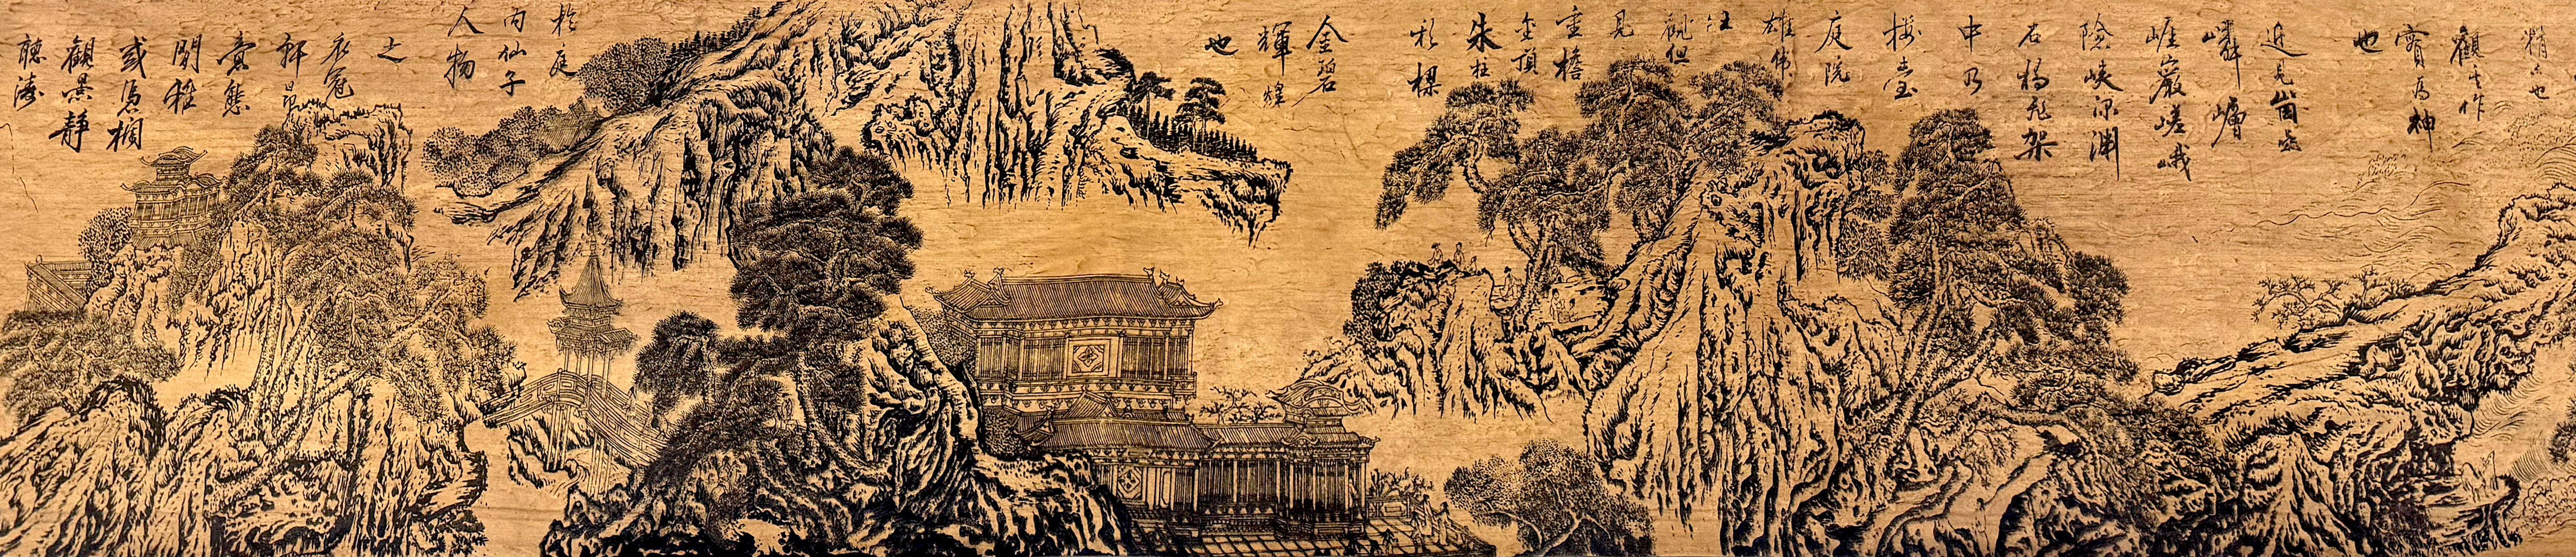 精久也
觀其作
實為神
也
近見崗巒
嶙嶒
崕巖嵯峨
險峽深淵
石橋飛架
中乃
樓臺
庭院
雄偉
壯
觀但
見
重檐
金頂
朱柱
彩樑
金碧
輝煌
也
於庭
内仙子
人物
之
衣冠
軒昂
意態
閒雅
或憑欄
觀景靜
聽濤